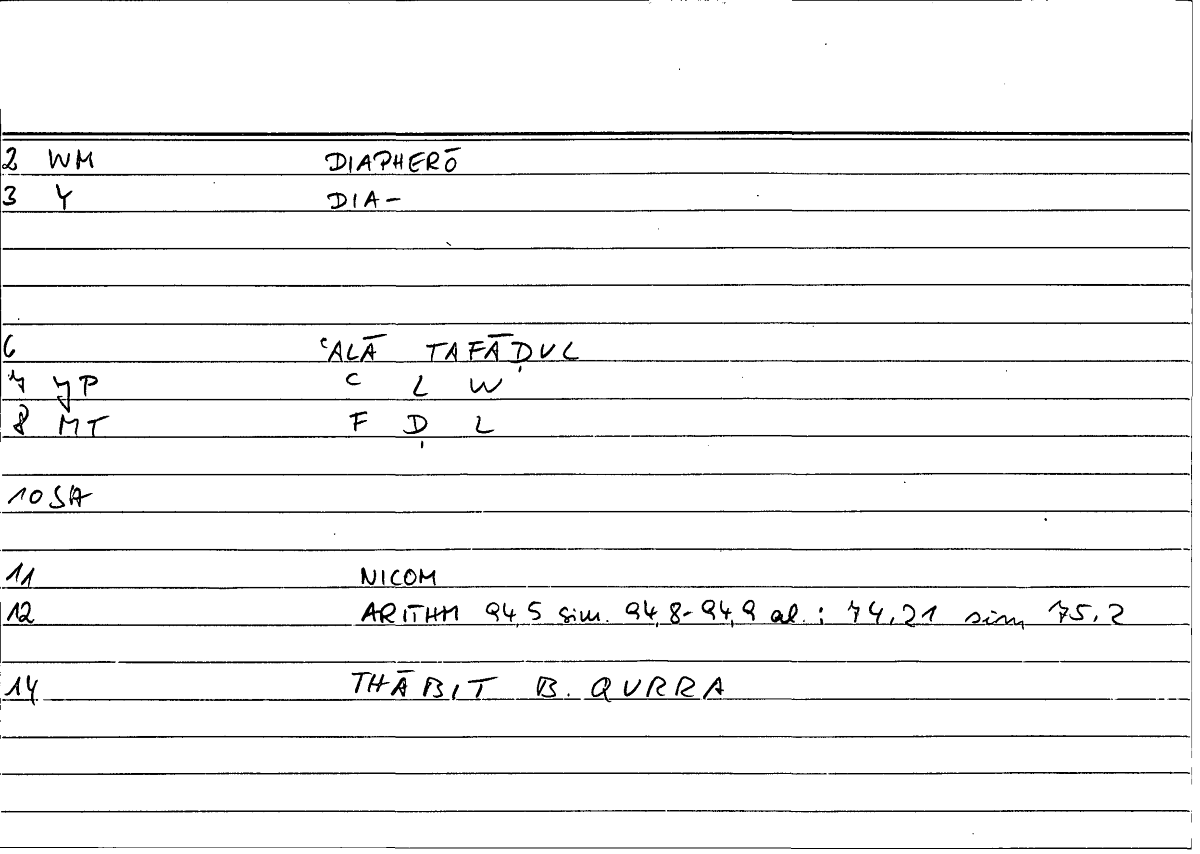 2 WM DIAPHERŌ
3 Y DIA-
6 ʿALĀ TAFĀḌUL
7 JP ʿ L W
8 MT F Ḍ L
10 SA
11 NICOM
12 ARITHM 94,5 sim. 94,8-94,9 al.: 74,21 sim, 75,2
14 THĀBIT B. QURRA